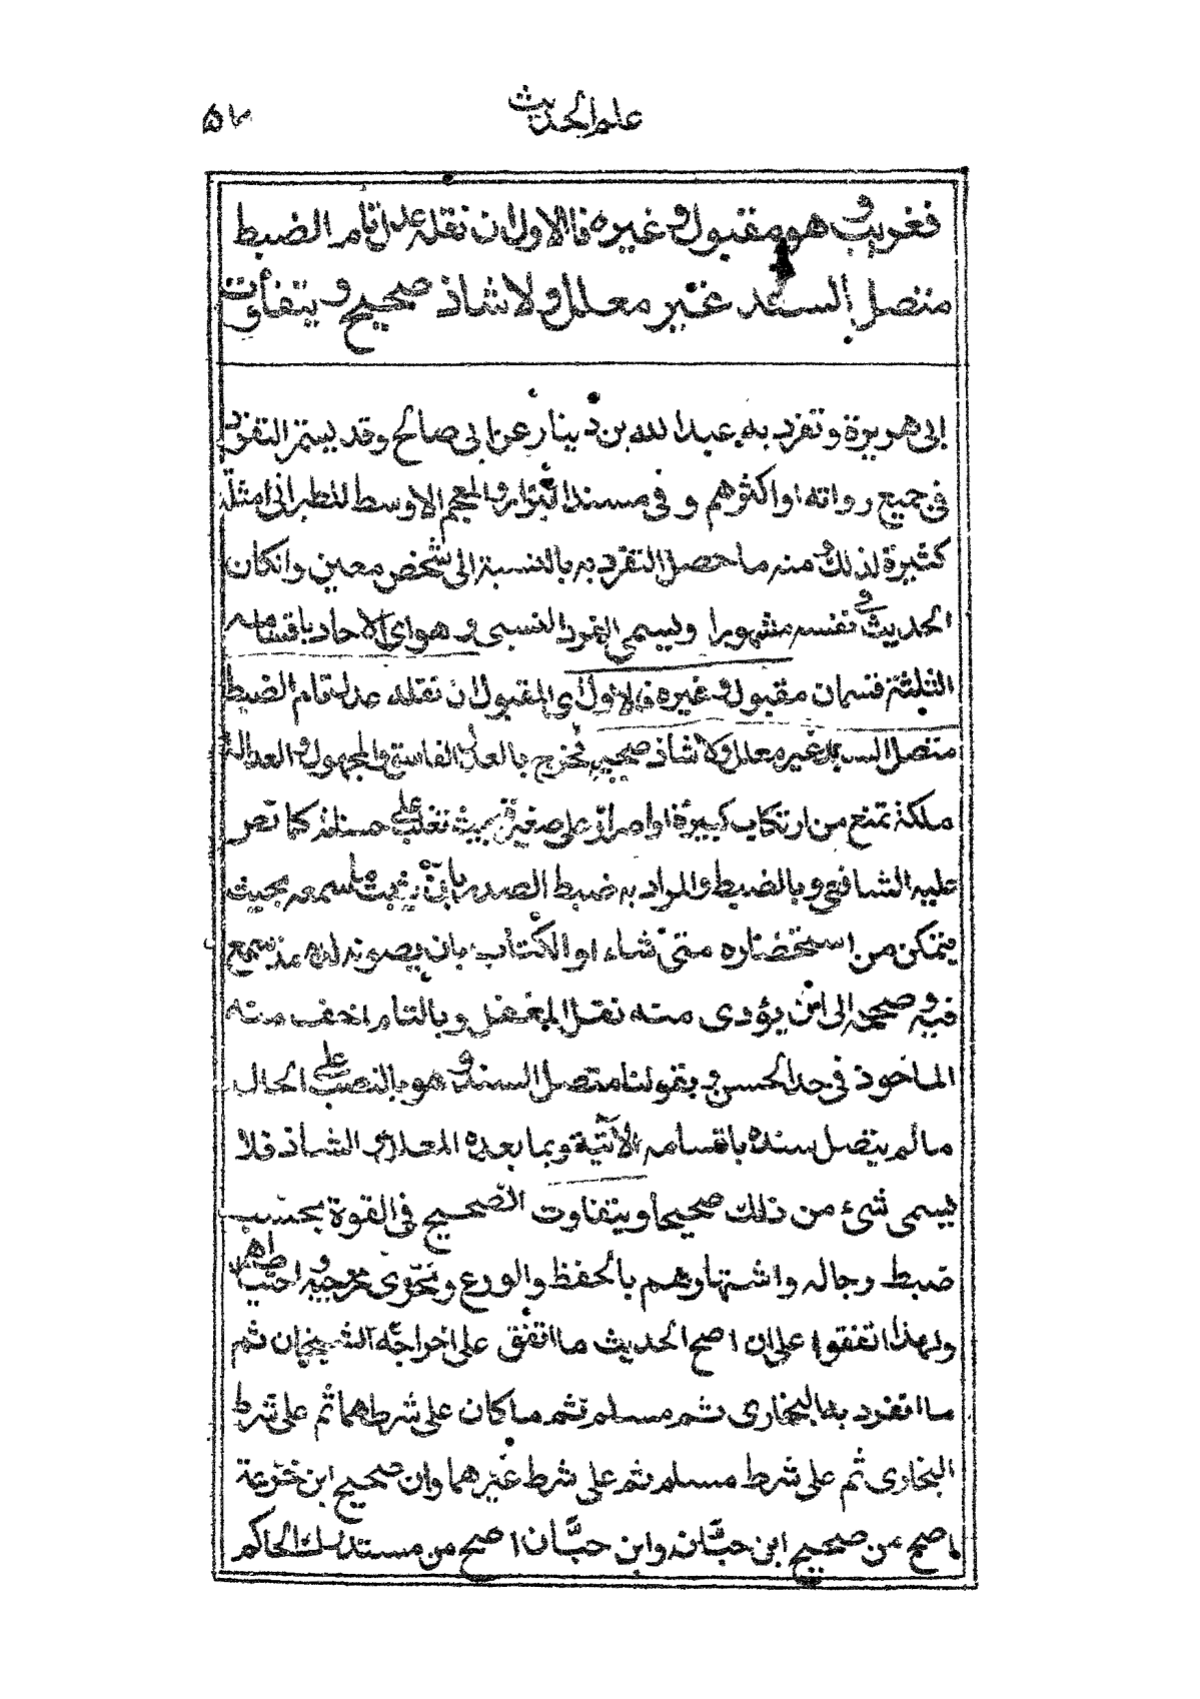 علم الحديث
فغريب وهو مقبول وغيره فالاول ان نقله عدل تام الضبط
متصل السند غير معلل ولا شاذ صحيح ويتفاوت
ابى هريرة وتفرد به عبد الله بن دينار عن ابى صالح وقد يستمر التفرد
فى جميع رواته او اكثرهم و فى مسند البزار والمعجم الاوسط للطبرانى امثلة
كثيرة لذلك ومنه ما حصل التفرد به بالنسبة الى شخص معين وانكان
الحديث فى نفسه مشهورا ويسمى الفرد النسبى وهو اى الاحاد باقسامه
الثلثة قسمان مقبول وغيره فالاول اى المقبول ان نقله عدل تام الضبط
متصل السند غير معلل ولا شاذ صحيح فخرج بالعدل الفاسق والمجهول والعدالة
ملكة تمنع من ارتكاب كبيرة او اصرار على صغيرة بحيث تغلب على حسناته كما نص
عليه الشافعى وبالضبط والمراد به ضبط الصدر بان يثبت ما سمعه بحيث
يتمكن من استحضاره متى شاء او الكتاب بان يصونه لديه مذ سمع
فيه وصححه الى ان يؤدى منه نقل المغفل وبالتام اخف منه
الماخوذ فى حد الحسن وبقولنا متصل السند وهو بالنصب على الحال
ما لم يتصل سنده باقسامه الآتية وبما بعده المعلل والشاذ فلا
يسمى شئ من ذلك صحيحا ويتفاوت الصحيح فى القوة بحسب
ضبط رجاله واشتهارهم بالحفظ والورع وتحرى مخرجيه واحتياطهم
ولهذا اتفقوا على ان اصح الحديث ما اتفق على اخراجه الشيخان ثم
ما انفرد به البخارى ثم مسلم ثم ما كان على شرطهما ثم على شرط
البخارى ثم على شرط مسلم ثم على شرط غيرهما وان صحيح ابن خزيمة
اصح من صحيح ابن حبان وابن حبان اصح من مستدرك الحاكم